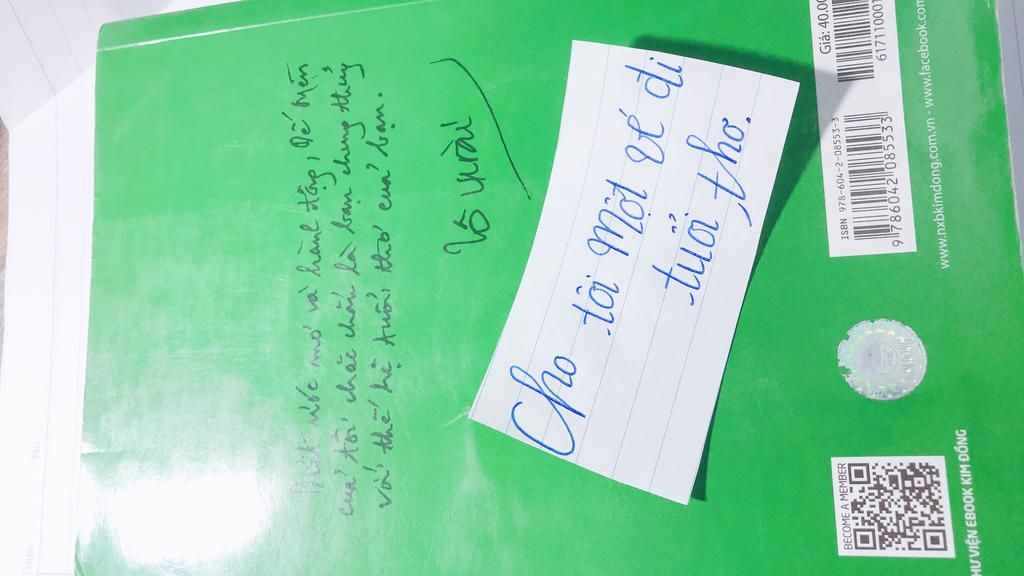 Biết ước mơ và hành động, Dế Mèn
của tôi chắc chắn là bạn chung thủy
với thế hệ tuổi thơ của bạn.
Tô Hoài
Cho tôi Một vé đi
tuổi thơ.
Giá: 40.00
617110001
ISBN 978-604-2-08553-3
9 786042 085533
www.nxbkimdong.com.vn - www.facebook.com
BECOME A MEMBER
HƯ VIỆN EBOOK KIM ĐỒNG
No.
Date